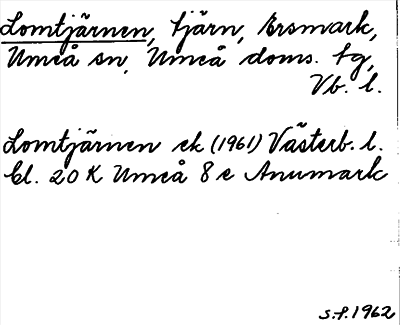 Lomtjärnen, tjärn, Ersmark,
Umeå sn, Umeå doms. tg,
Vb. l.
Lomtjärnen ek (1961) Västerb. l.
bl. 20 K Umeå 8 e Anumark
s.f. 1962